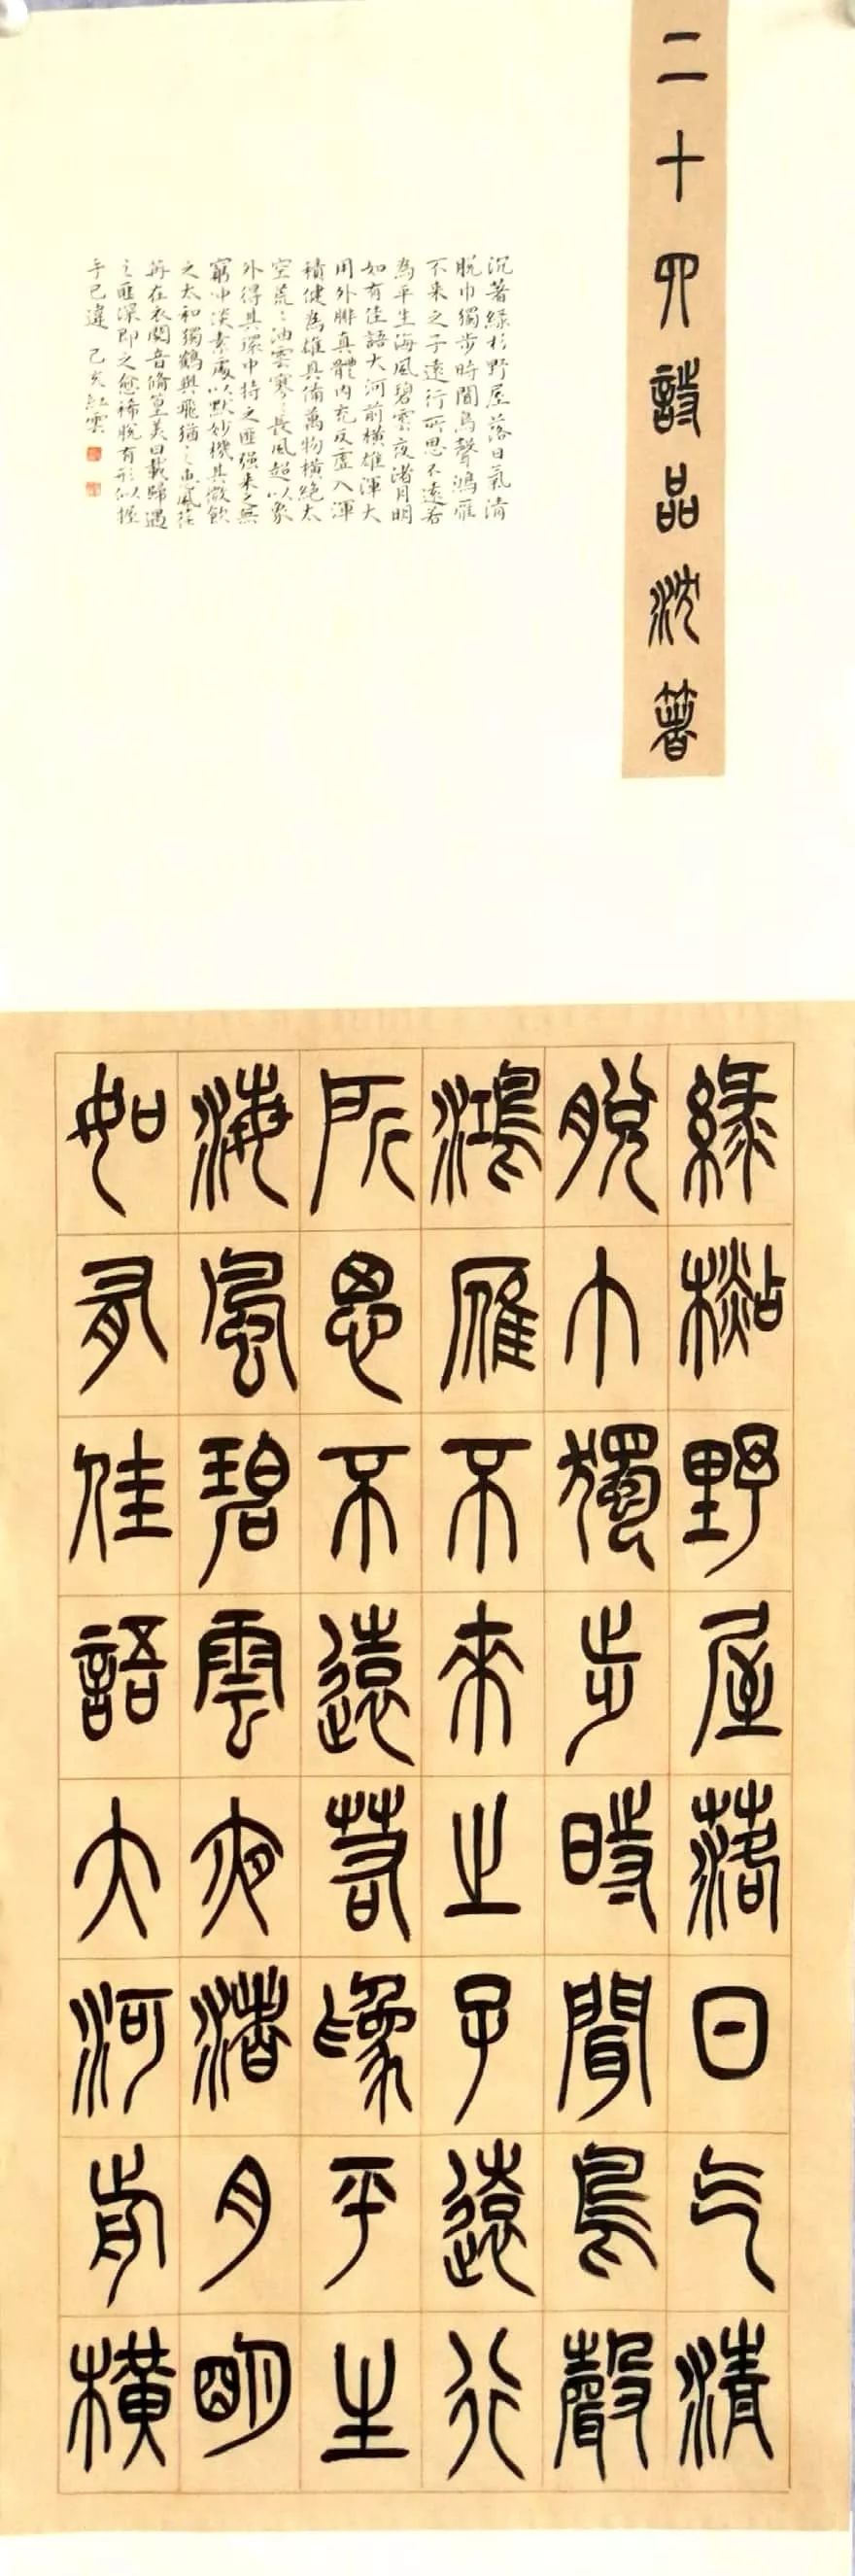 二十四詩品沈著
沉著綠杉野屋落日氣清
脫巾獨步時聞鳥聲鴻雁
不來之子遠行所思不遠若
為平生海風碧雲夜渚月明
如有佳語大河前橫雄渾大
用外腓真體內充反虛入渾
積健為雄具備萬物橫絕太
空荒〻油雲寥〻長風超以象
外得其環中持之匪強來之無
窮沖淡素處以默妙機其微飲
之太和獨鶴與飛猶之惠風荏
苒在衣閱音脩篁美曰載歸遇
之匪深即之愈稀脫有形似握
手已違 己亥紅雲
綠杉野屋落日气清
脫巾獨步時聞鳥聲
鴻雁不來之子遠行
所思不遠若為平生
海風碧雲夜渚月明
如有佳語大河前橫